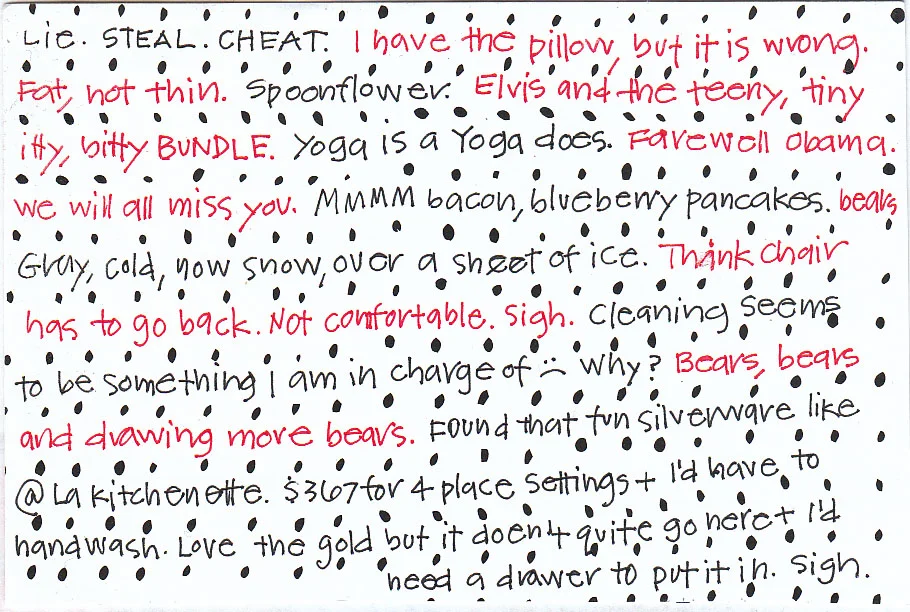 Lie. STEAL. CHEAT. I have the pillow, but it is wrong.
Fat, not thin. Spoonflower. Elvis and the teeny, tiny
itty, bitty BUNDLE. Yoga is a Yoga does. Farewell Obama.
we will all miss you. MMMM bacon, blueberry pancakes. bears
Gray, cold, now snow, over a sheet of ice. Think Chair
has to go back. Not comfortable. Sigh. Cleaning seems
to be something I am in charge of :( Why? Bears, bears
and drawing more bears. Found that fun silverware like
@ La Kitchenette. $367 for 4 place settings + I'd have to
handwash. Love the gold but it doen't quite go here + I'd
need a drawer to put it in. Sigh.